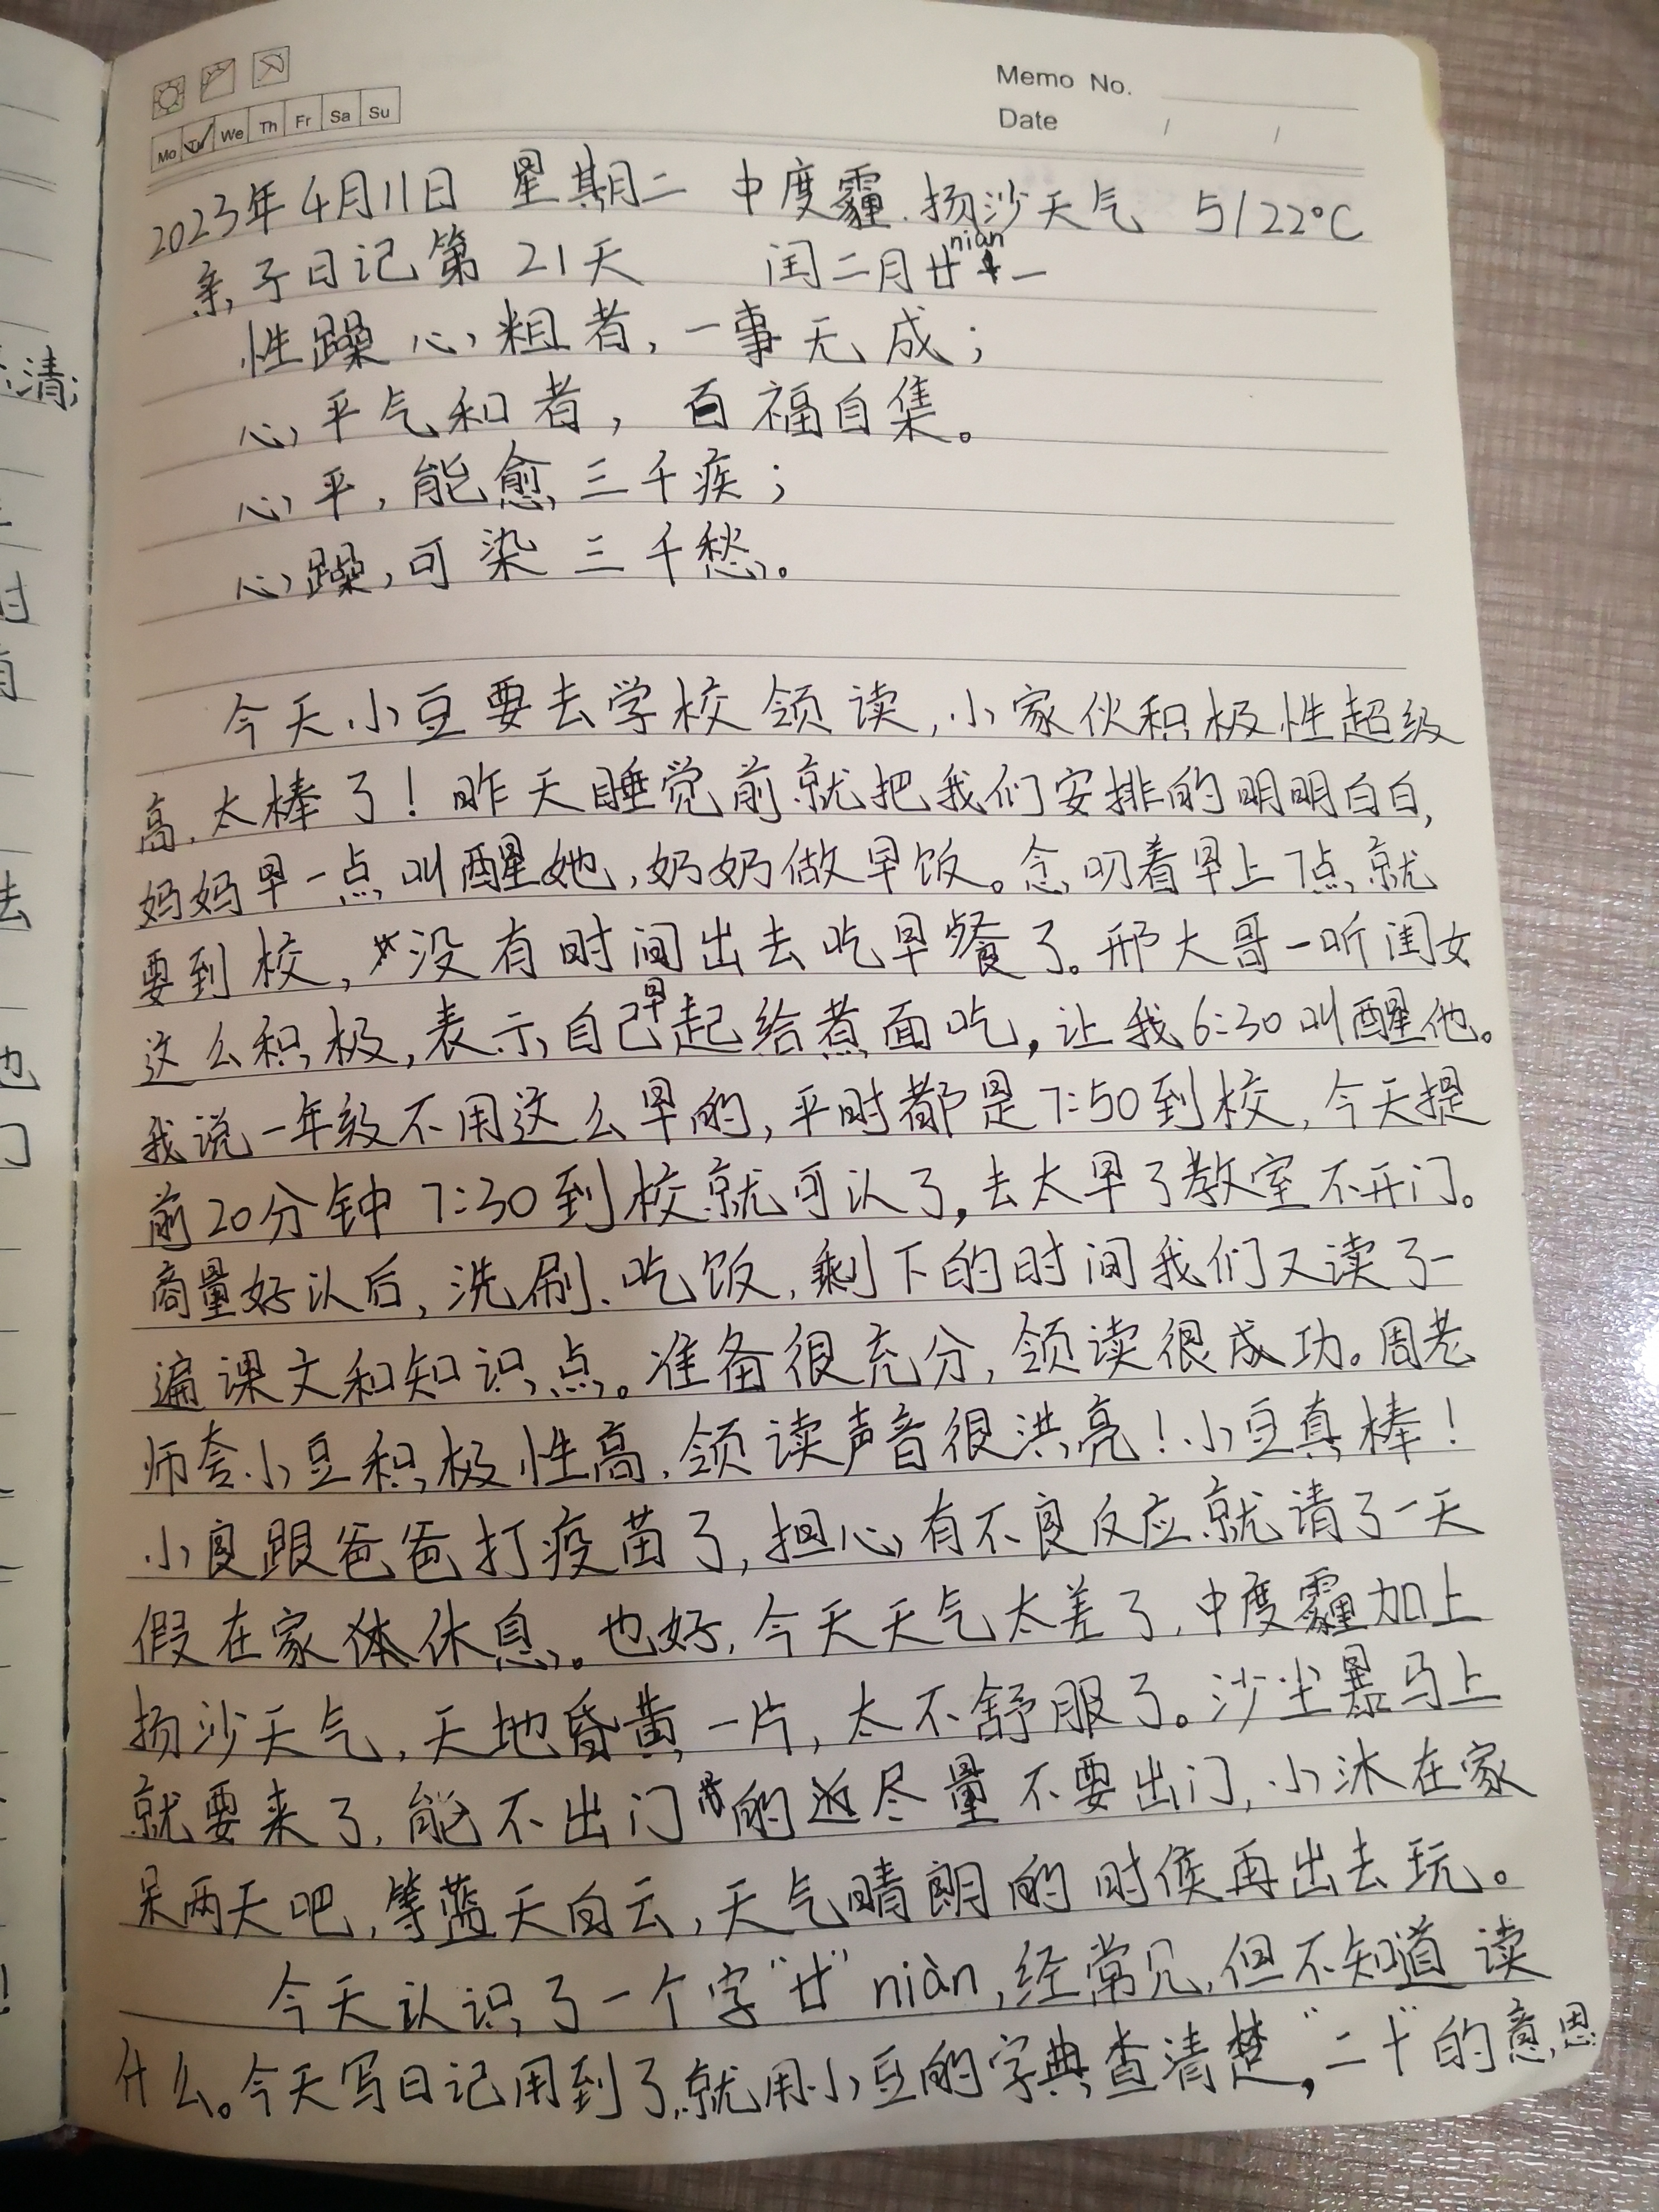 Memo No.
Date / /
Mo Tu We Th Fr Sa Su
2023年4月11日 星期二 中度霾.扬沙天气 5/22℃
亲子日记第21天 闰二月廿一
nian
性躁心粗者,一事无成;
心平气和者,百福自集。
心平,能愈三千疾;
心躁,可染三千愁。
今天小豆要去学校领读,小家伙积极性超级
高.太棒了!昨天睡觉前就把我们安排的明明白白,
妈妈早一点叫醒她,奶奶做早饭。念叨着早上7点就
要到校,没有时间出去吃早餐了。邢大哥一听闺女
这么积极,表示自己早起给煮面吃,让我6:30叫醒他。
我说一年级不用这么早的,平时都是7:50到校,今天提
前20分钟7:30到校就可以了,去太早了教室不开门。
商量好以后,洗刷、吃饭,剩下的时间我们又读了一
遍课文和知识点。准备很充分,领读很成功。周老
师夸小豆积极性高,领读声音很洪亮!小豆真棒!
小良跟爸爸打疫苗了,担心有不良反应就请了一天
假在家休息。也好,今天天气太差了,中度霾加上
扬沙天气,天地昏黄一片,太不舒服了。沙尘暴马上
就要来了,能不出门的尽量不要出门,小沐在家
呆两天吧,等蓝天白云,天气晴朗的时候再出去玩。
今天认识了一个字"廿"niàn,经常见,但不知道读
什么。今天写日记用到了,就用小豆的字典查清楚,"二十"的意思
清;
时
去
也
门